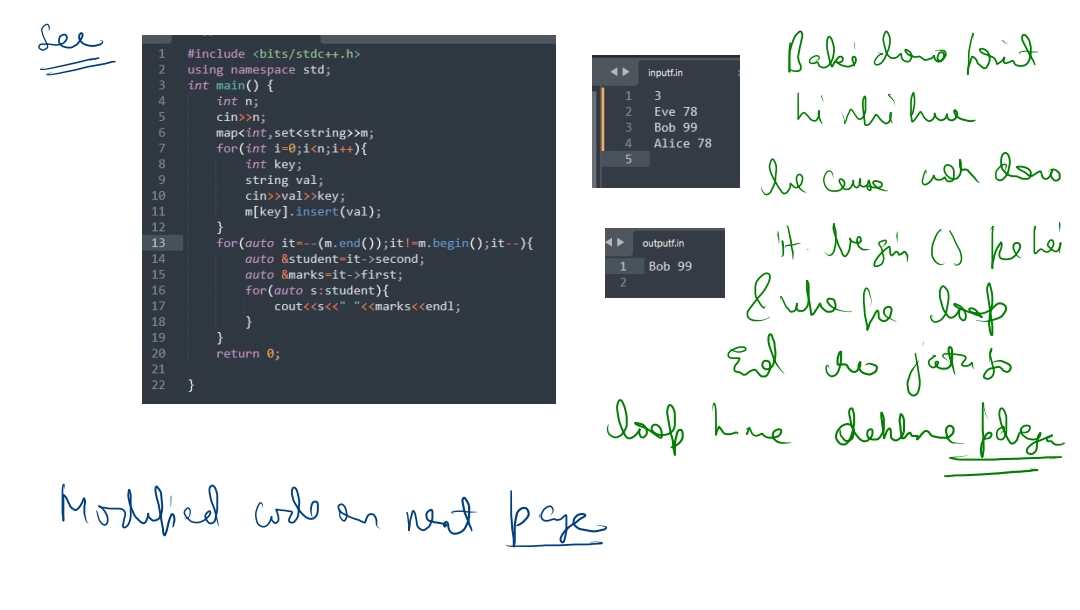 See
1 #include <bits/stdc++.h>
2 using namespace std;
3 int main() {
4 int n;
5 cin>>n;
6 map<int,set<string>>m;
7 for(int i=0;i<n;i++){
8 int key;
9 string val;
10 cin>>val>>key;
11 m[key].insert(val);
12 }
13 for(auto it=--(m.end());it!=m.begin();it--){
14 auto &student=it->second;
15 auto &marks=it->first;
16 for(auto s:student){
17 cout<<s<<" "<<marks<<endl;
18 }
19 }
20 return 0;
21
22 }
inputf.in
1 3
2 Eve 78
3 Bob 99
4 Alice 78
5
outputf.in
1 Bob 99
2
Baki dono print
hi nhi hue
be cause woh dono
it. begin () pe hai
& waha pe loop
End ho jata so
loop hme dekhne pdega
Modified code on next page